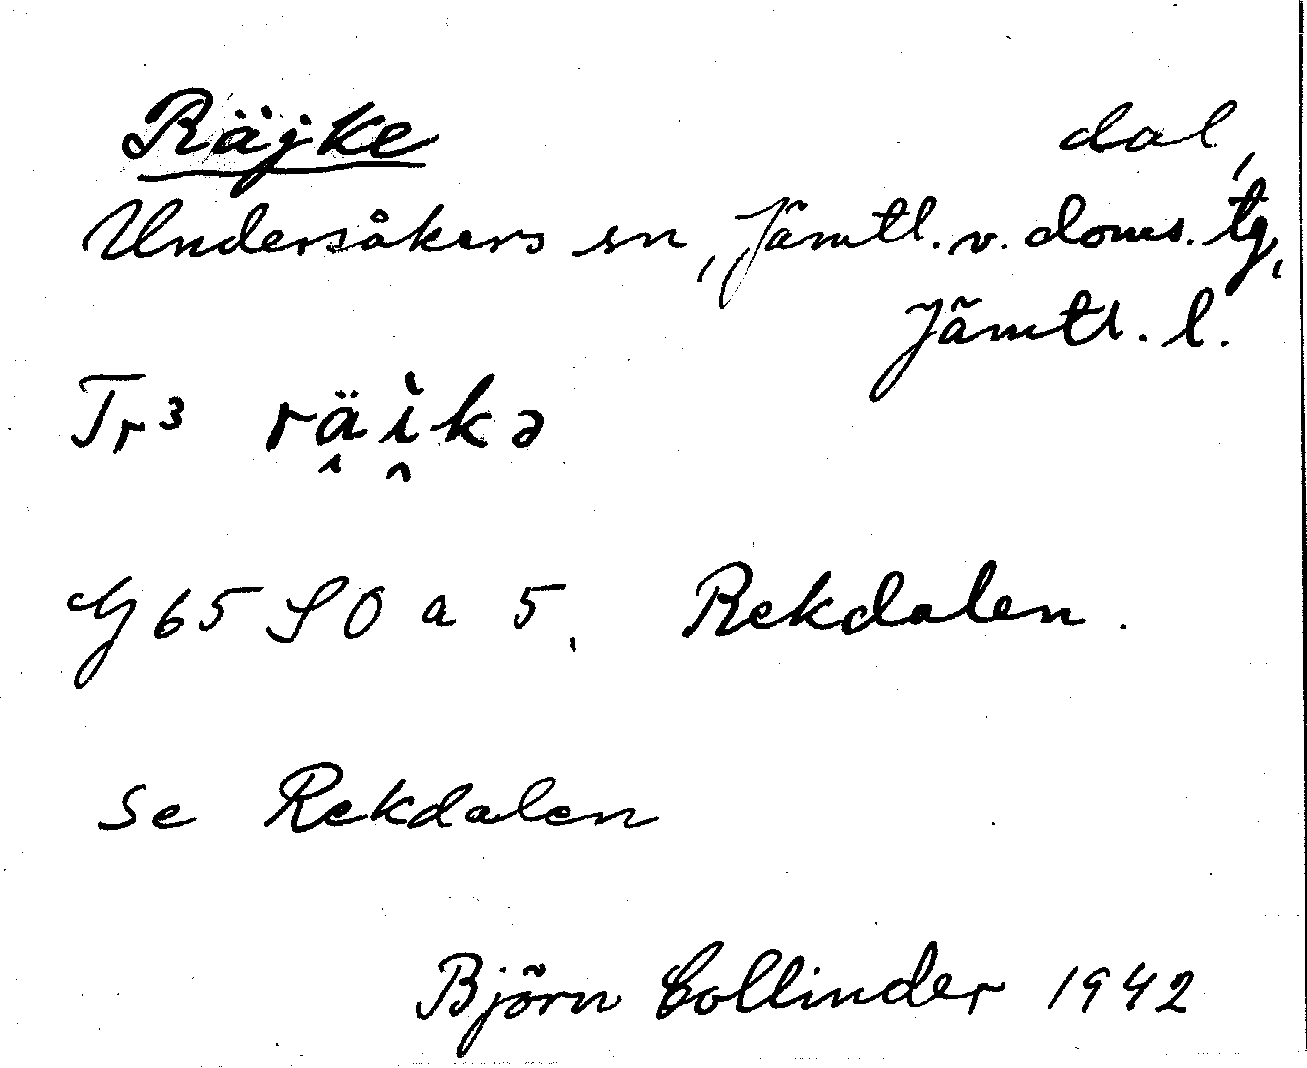 Räjke dal,
Undersåkers sn, Jämtl. v. doms. tg,
Jämtl. l.
Tr³ rä̭ì̯kə
G 65 SO a 5, Rekdalen.
se Rekdalen
Björn Collinder 1942